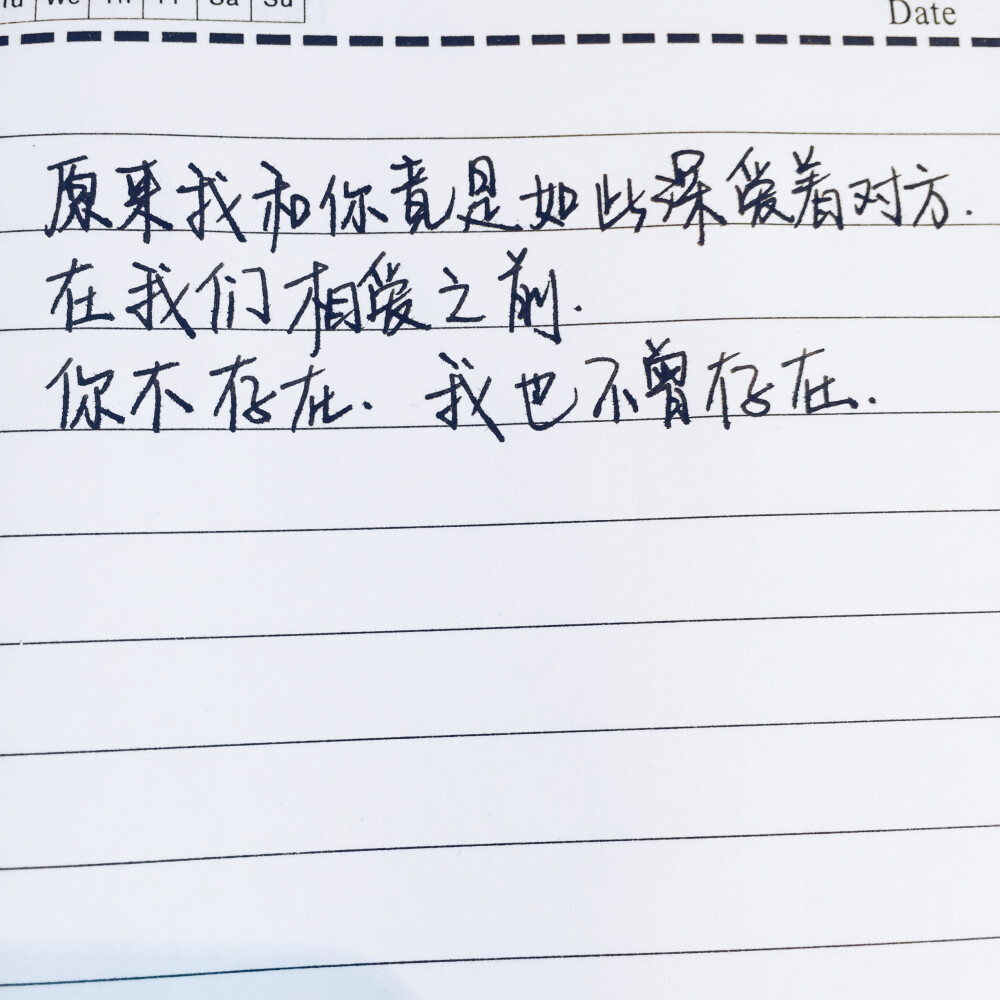 Tu We Th Fr Sa Su
Date
原来我和你竟是如此深爱着对方.
在我们相爱之前.
你不存在. 我也不曾存在.